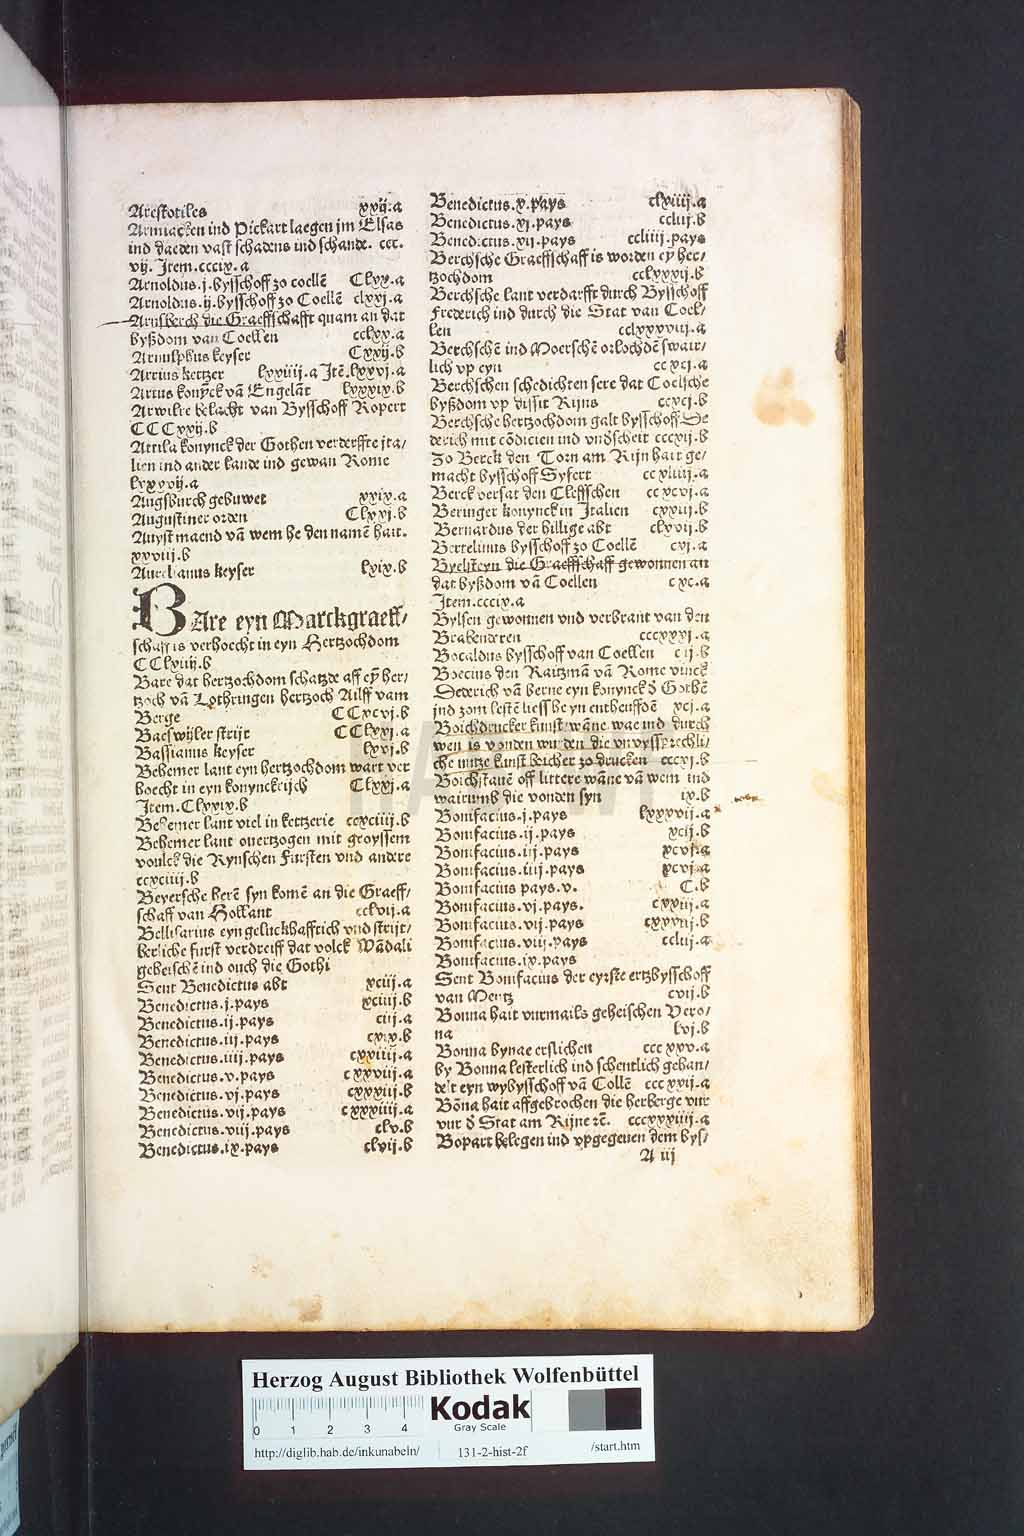 Arestotiles xxij.a
Armiacken ind Pickart laegen jm Elsas
ind daeden vast schadens ind schande. ccc.
vij. Jtem.cccix.a
Arnoldus.j.bysschoff zo coellē CLxx.a
Arnoldus.ij.bysschoff zo Coellē clxxj.a
Arnsberch die Graeffschafft quam an dat
byßdom van Coellen cclxx.a
Arnulphus keyser Cxxij.b
Arrius ketzer lxviiij.a Jtē.lxxvj.a
Artus konyck vā Engelāt lxxxix.b
Arwilre belacht van Bysschoff Ropert
CCCxxij.b
Attila konynck der Gothen verderffte jta/
lien ind ander lande ind gewan Rome
lxxxvij.a
Augsburch gebuwet xxix.a
Augustiner orden CLxxj.b
Auyst maend vā wem he den namē hait.
xxviij.b
Aurelianus keyser lxix.b
BAre eyn Marckgraeff/
schaff is verhoecht in eyn Hertzochdom
CClviij.b
Bare dat hertzochdom schatzde aff eȳ her/
tzoch vā Lothringen hertzoch Ailff vam
Berge CCxcvj.b
Baeswijler strijt CCLxxj.a
Bassianus keyser lxvj.b
Behemer lant eyn hertzochdom wart ver
hoecht in eyn konynckrijch CLxxj.a
Jtem.CLxxix.b
Behemer lant viel in kettzerie ccxciiij.b
Behemer lant overtzogen mit groyssem
voulck die Rynschen Fursten vnd andere
ccxciiij.b
Beyersche herē syn komē an die Graeff/
schaff van Hollant cclvij.a
Bellisarius eyn geluckhafftich vnd strijt/
berliche furst verdreiff dat volck Wādali
geheischē ind ouch die Gothi
Sent Benedictus abt xciij.a
Benedictus.j.pays xciiij.b
Benedictus.ij.pays ciij.a
Benedictus.iij.pays cxix.b
Benedictus.iiij.pays cxxiiij.a
Benedictus.v.pays cxxviij.a
Benedictus.vj.pays cxxxiij.b
Benedictus.vij.pays cxxxiiij.a
Benedictus.viij.pays clv.b
Benedictus.ix.pays clvij.b
Benedictus.x.pays clxiiij.a
Benedictus.xj.pays ccliij.b
Benedictus.xij.pays ccliiij.pays
Berchsche Graeffschaff is worden eȳ her/
tzochdom cclxxxij.b
Berchsche lant verdarfft durch Bysschoff
Frederich ind durch die Stat van Coel/
len cclxxxviij.a
Berchschē ind Moerschē orlochdē swair/
lich vp eyn ccxcj.a
Berchschen schedichten sere dat Coelsche
byßdom vp dissit Rijns ccxcj.b
Berchsche hertzochdom galt bysschoff De
derich mit cōdicien ind vnderscheit cccxij.b
Zo Berck den Torn am Rijn hait ge/
macht bysschoff Syfert ccxliiij.a
Berck versat den Cleffschen ccxcvj.a
Beringer konynck in Italien cxxij.b
Bernardus der hillige abt clxvij.b
Bertelinus bysschoff zo Coellē cvj.a
Byelsteyn die Graeffschaff gewonnen an
dat byßdom vā Coellen cxc.a
Jtem.cccix.a
Bylsen gewonnen vnd verbrant van den
Brabenderen cccxxxj.a
Bocaldus bysschoff van Coellen cij.b
Boecius den Raitzmā vā Rome vinck
Dederich vā berne eyn konynck d̄ Gothē
jnd zom lestē liess he yn entheuffdē xcj.a
Boichdrucker kunst wāne, wae ind durch
wen is vonden wurden die vnvyssprechli/
che nutze kunst boicher zo drucken cccxj.b
Boichstauē off littere wāne vā wem ind
wairumb die vonden syn ix.b
Bonifacius.j.pays lxxxvij.a
Bonifacius.ij.pays xcij.b
Bonifacius.iij.pays xcvj.a
Bonifacius.iiij.pays xcvj.a
Bonifacius pays.v. C.b
Bonifacius.vj.pays. cxxiij.a
Bonifacius.vij.pays cxxxiij.b
Bonifacius.viij.pays ccliij.a
Bonifacius.ix.pays
Sent Bonifacius der eyrste ertzbysschoff
van Mentz cvij.b
Bonna hait vurmails geheischen Vero/
na lvj.b
Bonna bynae erslichen cccxxv.a
by Bonna lesterlich ind schentlich gehan/
delt eyn wybysschoff vā Collē cccxxij.a
Bōna hait affgebrochen die herberge vur
vur d̄ Stat am Rijne ꝛc̄. cccxxxiiij.a
Bopart belegen ind vpgegeuen dem bys/
A iij
Herzog August Bibliothek Wolfenbüttel
0 1 2 3 4
Kodak
Gray Scale
http://diglib.hab.de/inkunabeln/ 131-2-hist-2f /start.htm